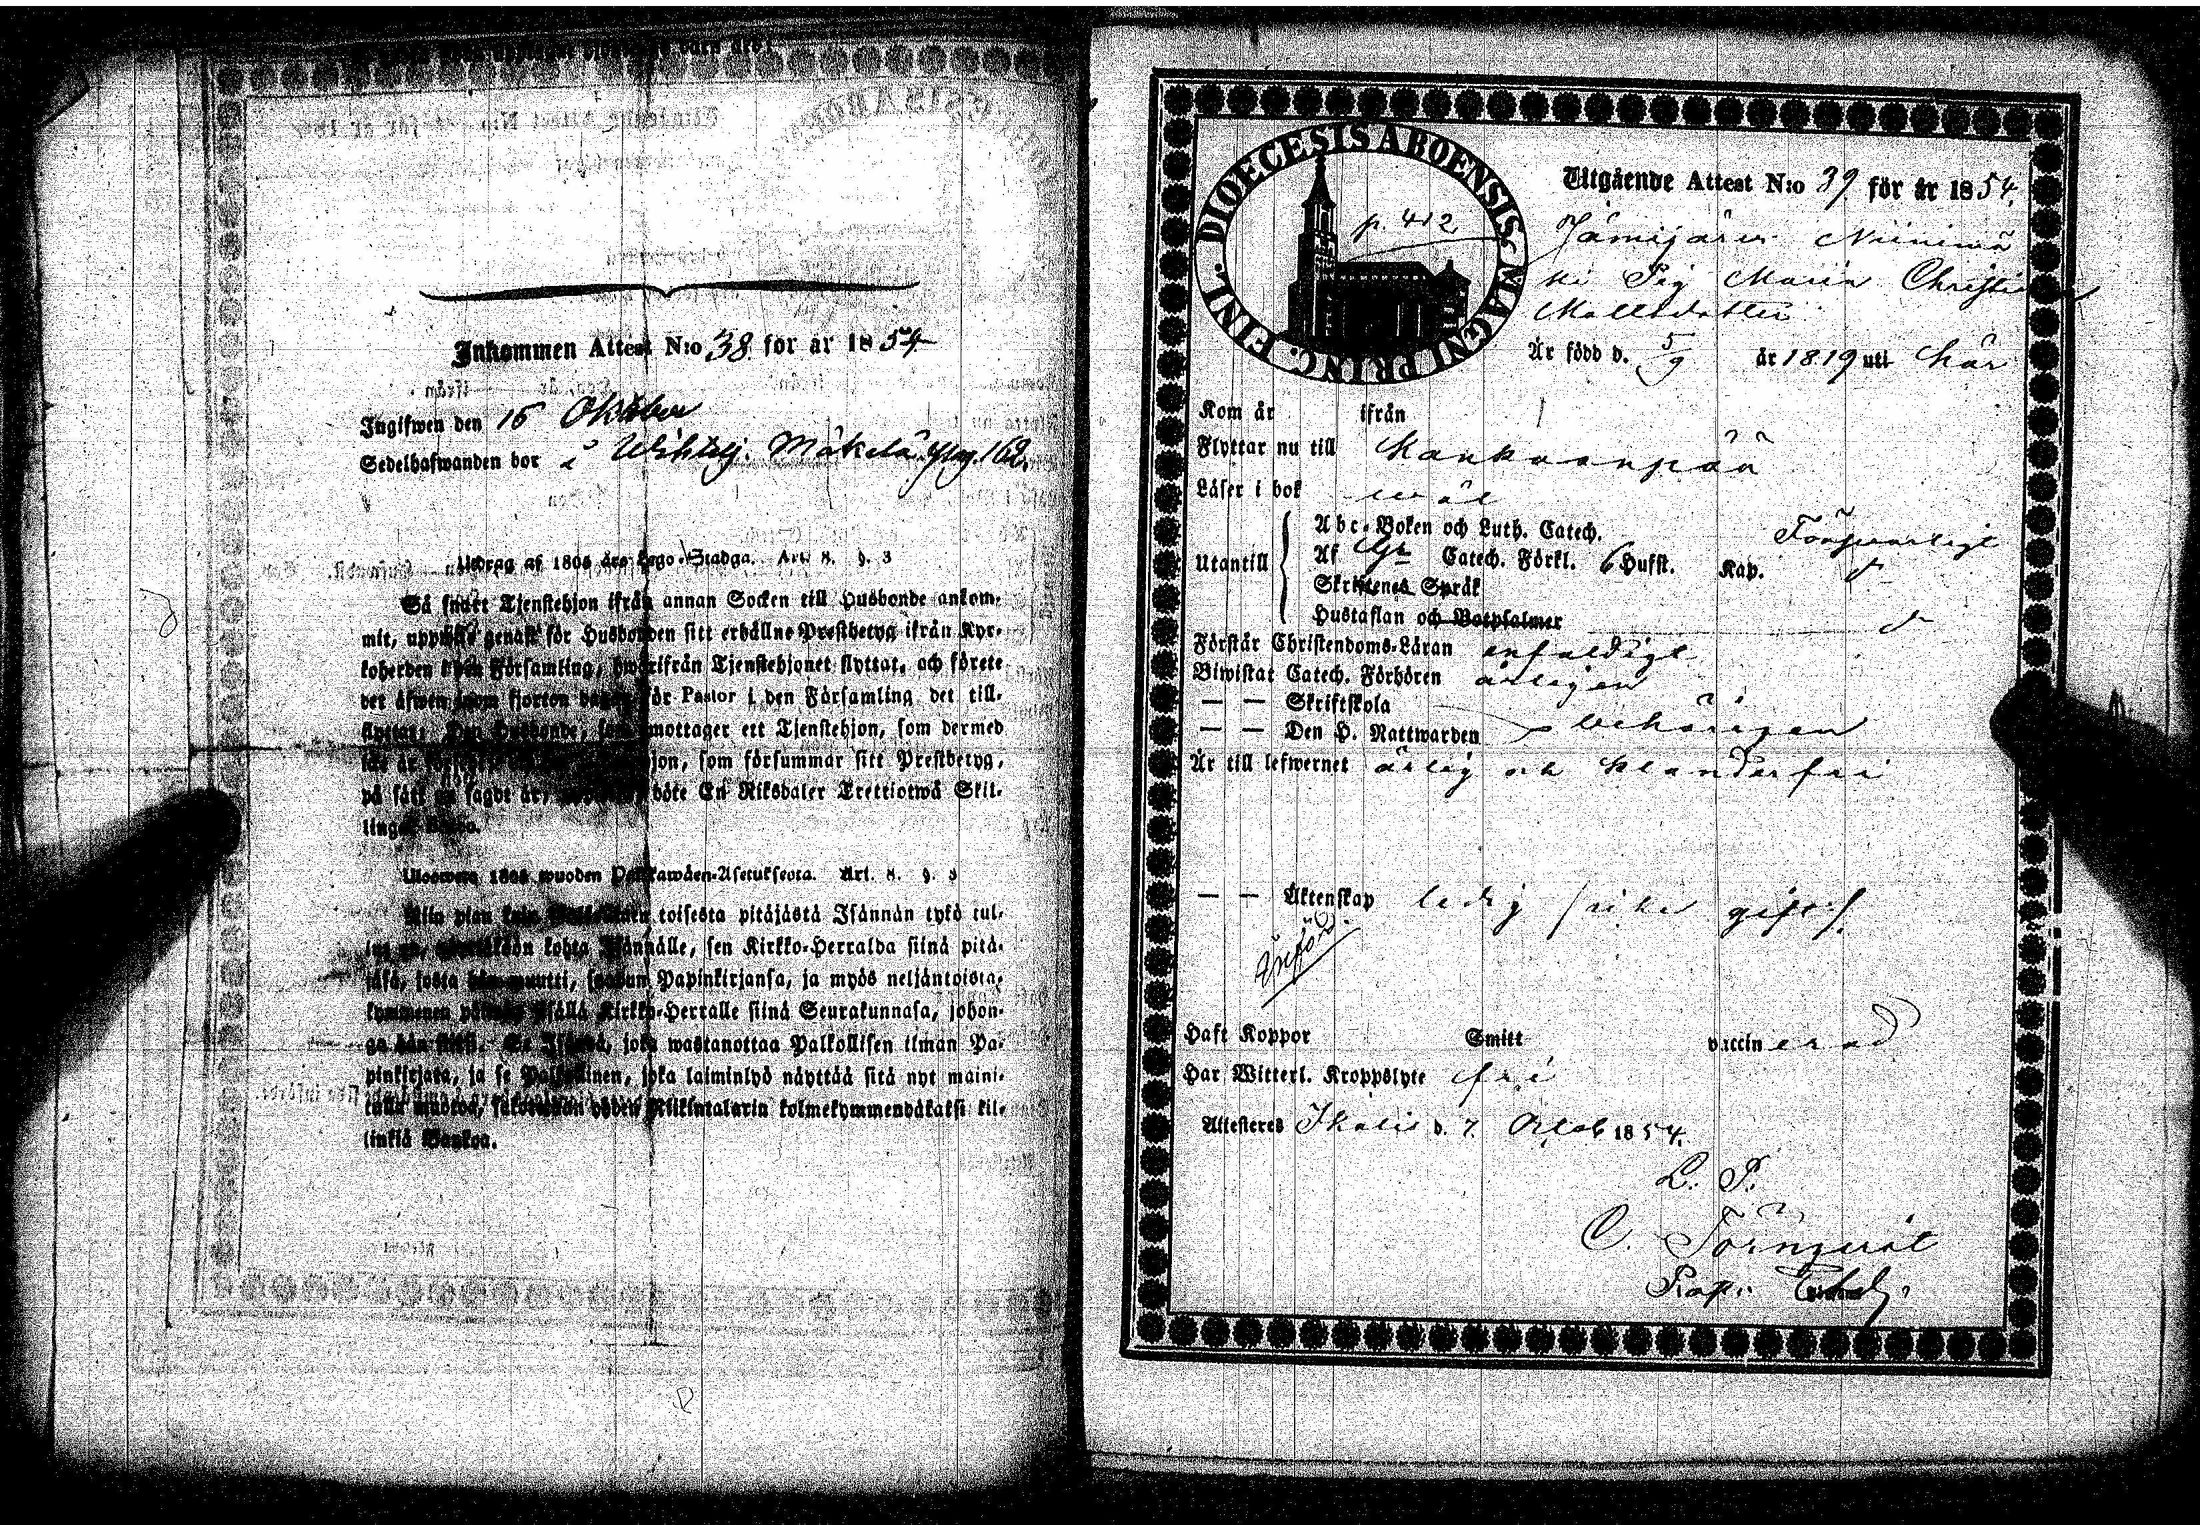 Inkommen Attest N:o 38 för år 1854
Ingifwen den 15 Oktober
Sedelhafwanden bor i Mäkelä 162.
Utdrag af 1805 års Lego-Stadga. Art. 8. §. 3
Så snart Tjenstehjon ifrån annan Socken till Husbonde ankom-
mit, uppwise genast för Husbonden sitt erhållne Prestbetyg ifrån Kyr-
koherden i den Församling, hwarifrån Tjenstehjonet flyttat, och förete
det äfwen inom fjorton dagar för Pastor i den Församling det till-
flyttat. Den Husbonde, som emottager ett Tjenstehjon, som dermed
icke är försedt, som försummar sitt Prestbetyg,
på sätt nu sagdt är, böte En Riksdaler Trettiotwå Skil-
lingar Banco.
Ulosweto 1805 wuoden Palkkawäen-Asetuksesta. Art. 8. §. 3
Niin pian kuin toisesta pitäjästä Isännän tykö tul-
lut on, kohta Isännälle, sen Kirkko-Herralda siinä pitä-
jäsä, josta hän muutti, saadun Papinkirjansa, ja myös neljäntoista-
kymmenen päiwän sisällä Kirkko-Herralle siinä Seurakunnasa, johon-
ga hän siirsi. Se Isändä, joka wastanottaa Palkollisen ilman Pa-
pinkirjata, ja se Palkollinen, joka laiminlyö näyttää sitä nyt maini-
tulla muodoa, sakotetaan yhden Riikintalarin kolmekymmendäkaksi kil-
linkiä Bankoa.
DIOECESIS ABOENSIS. MAGNI PRINC. FINL.
p. 412
Utgående Attest N:o 39 för år 1854.
Jämijärvi Niinimä
ki Pig Maria Christina
Mattsdotter
Är född d. 5/9 år 1819 uti här
Kom år ifrån
Flyttar nu till Kankaanpää
Läser i bok väl
Utantill
Abc-Boken och Luth. Catech. Försvarligt
Af Catech. Förkl. 6 Hufst. Kap.
Skriftenes Språk
Hustaflan och Botpsalmer
Förstår Christendoms-Läran enfaldigt
Biwistat Catech. Förhören årligen
— — Skriftskola
— — Den H. Nattwarden behörigen
Är till lefwernet ärlig och klanderfri
— — Äktenskap ledig gift
Haft Koppor Smitt vaccinerad
Har Witterl. Kroppslyte fri
Attesteras Ikalis d. 7 Octob 1854.
L. S.
C. Törnqvist
Kap.